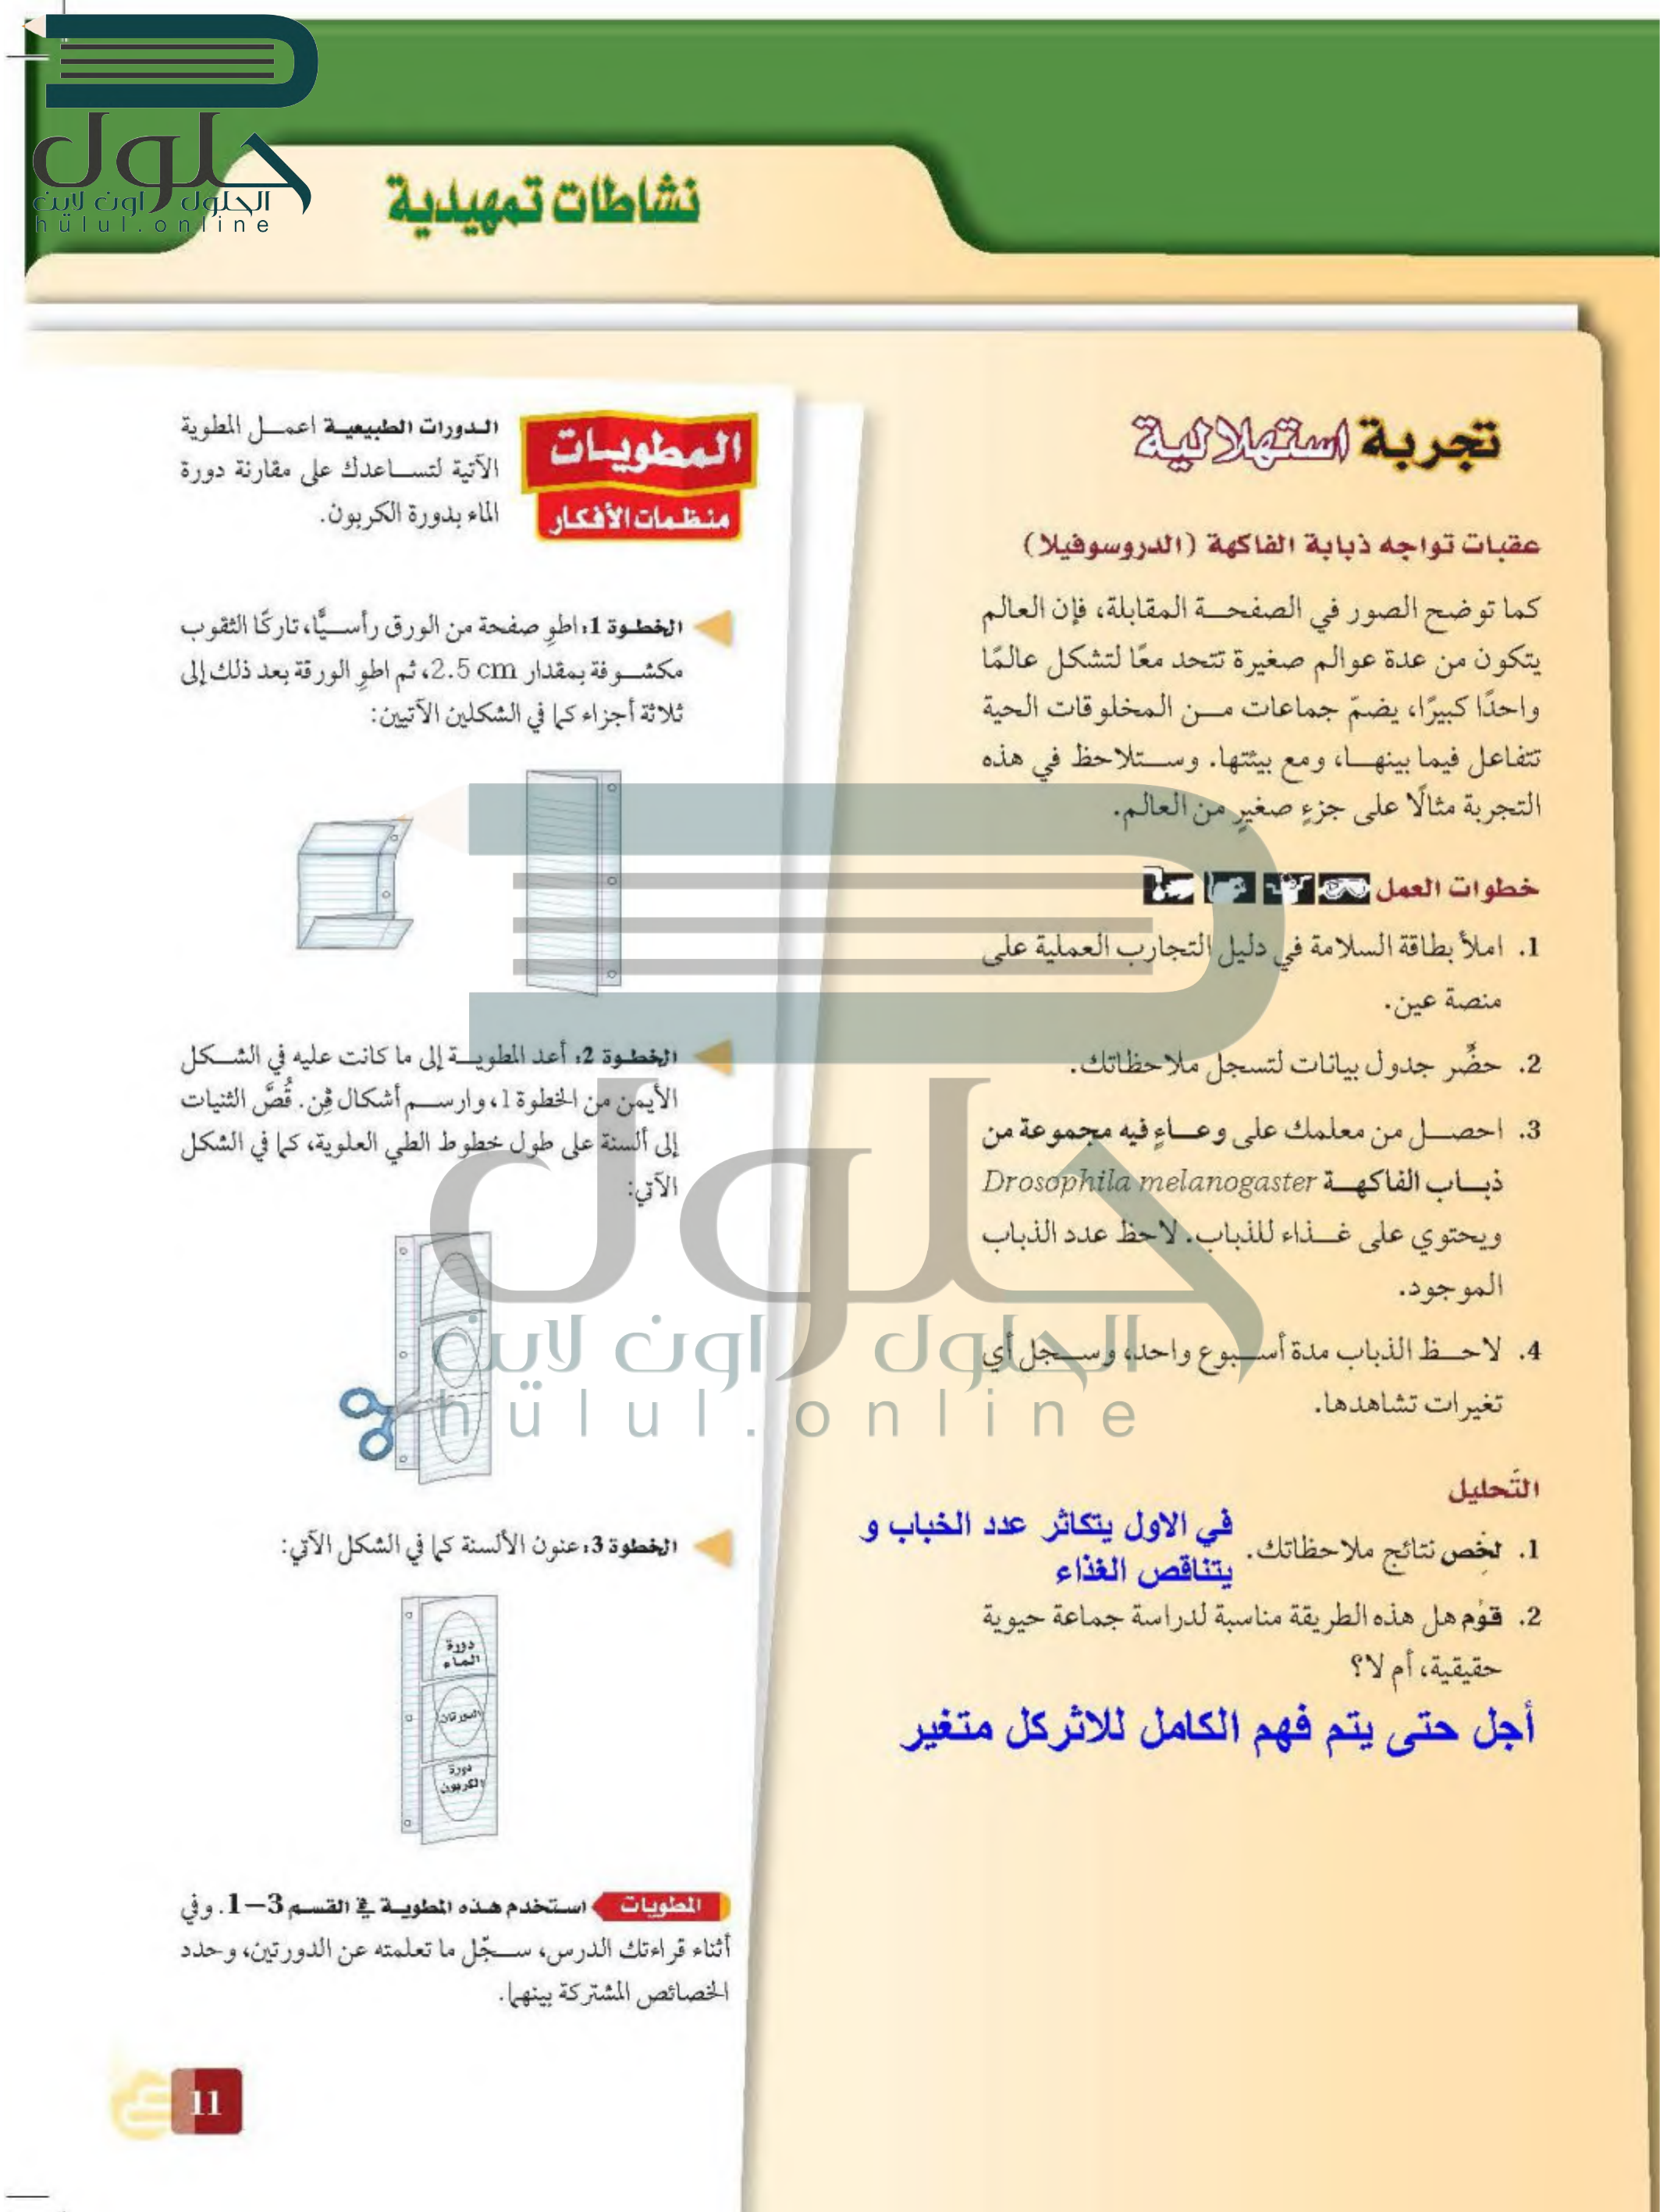 حلول
الحلول اون لاين
hulul.online
نشاطات تمهيدية
تجربة استهلالية
عقبات تواجه ذبابة الفاكهة (الدروسوفيلا)
كما توضح الصور في الصفحة المقابلة، فإن العالم
يتكون من عدة عوالم صغيرة تتحد معًا لتشكل عالمًا
واحدًا كبيرًا، يضمّ جماعات من المخلوقات الحية
تتفاعل فيما بينها، ومع بيئتها. وستلاحظ في هذه
التجربة مثالًا على جزءٍ صغيرٍ من العالم.
خطوات العمل
1. املأ بطاقة السلامة في دليل التجارب العملية على
منصة عين.
2. حضِّر جدول بيانات لتسجل ملاحظاتك.
3. احصل من معلمك على وعاءٍ فيه مجموعة من
ذباب الفاكهة Drosophila melanogaster
ويحتوي على غذاء للذباب. لاحظ عدد الذباب
الموجود.
4. لاحظ الذباب مدة أسبوع واحد، وسجل أي
تغيرات تشاهدها.
التّحليل
1. لخِّص نتائج ملاحظاتك.
في الاول يتكاثر عدد الخباب و
يتناقص الغذاء
2. قوِّم هل هذه الطريقة مناسبة لدراسة جماعة حيوية
حقيقية، أم لا؟
أجل حتى يتم فهم الكامل للاثركل متغير
المطويات
منظمات الأفكار
الدورات الطبيعية اعمل المطوية
الآتية لتساعدك على مقارنة دورة
الماء بدورة الكربون.
الخطوة 1: اطوِ صفحة من الورق رأسيًّا، تاركًا الثقوب
مكشوفة بمقدار 2.5 cm، ثم اطوِ الورقة بعد ذلك إلى
ثلاثة أجزاء كما في الشكلين الآتيين:
الخطوة 2: أعد المطوية إلى ما كانت عليه في الشكل
الأيمن من الخطوة 1، وارسم أشكال ڤِن. قُصَّ الثنيات
إلى ألسنة على طول خطوط الطي العلوية، كما في الشكل
الآتي:
الخطوة 3: عنون الألسنة كما في الشكل الآتي:
دورة
الماء
الدورتان
دورة
الكربون
المطويات استخدم هذه المطوية في القسم 3–1. وفي
أثناء قراءتك الدرس، سجّل ما تعلمته عن الدورتين، وحدد
الخصائص المشتركة بينهما.
11
حلول
الحلول اون لاين
hulul.online